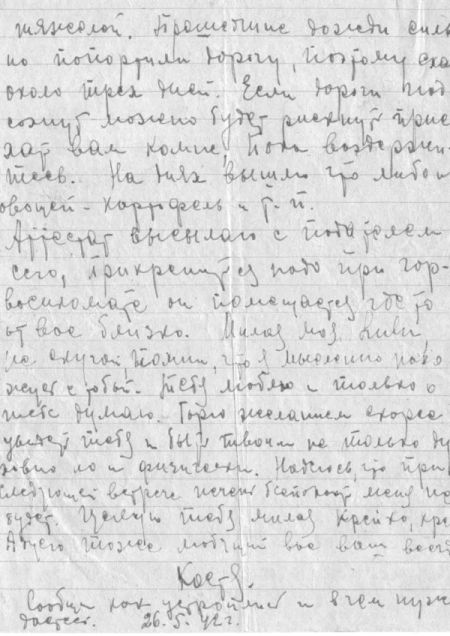 тяжелой. Прошедшие дожди силь
но попортили дорогу, поэтому еха
около трех дней. Если дороги под
сохнут можно будет рискнут прие
хат вам комне, пока воздержи-
тесь. На днях вышлю что либо и
овощей - картофель и т. п.
Аттестат высылаю с подателем
сего, прикрепится надо при гор-
военкомате он помещается где то
от вас близко. Милая моя
не скучай помни, что я мысленно нахо
жусь с тобой. Тебя люблю и только о
тебе думаю. Горю желанием скорее
увидет тебя и быть не только ду
ховно но и физически. Надеюсь, что при
следующей встрече печень беспокоит меня не
будет. Целую тебя милая крепко, кре
тоже любящий вас ваш всегда
Костя.
Сообщи как устроились и в чем нуж
даетесь. 26.5.42 г.